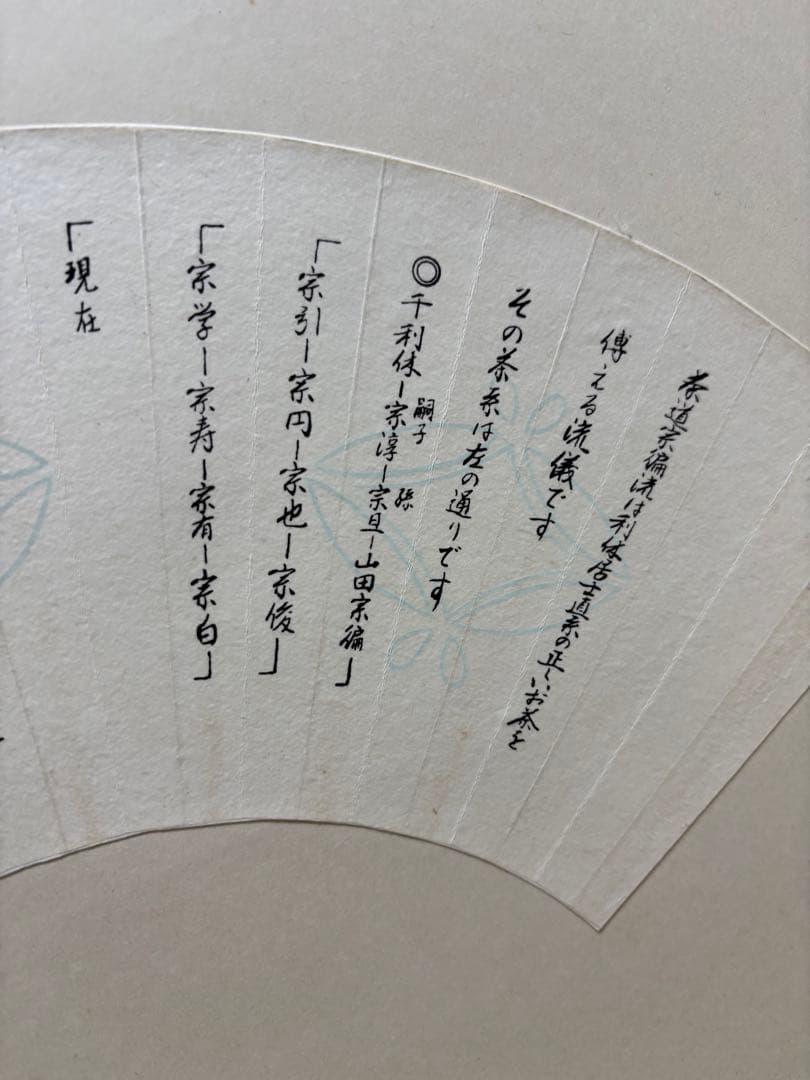 茶道宗徧流は利休居士直系の正しいお茶を
傳える流儀です
その茶系は左の通りです
◎千利休ー宗淳ー宗旦ー山田宗徧」
嗣子 孫
「宗引ー宗円ー宗也ー宗俊」
「宗学ー宗寿ー宗有ー宗白」
「現在